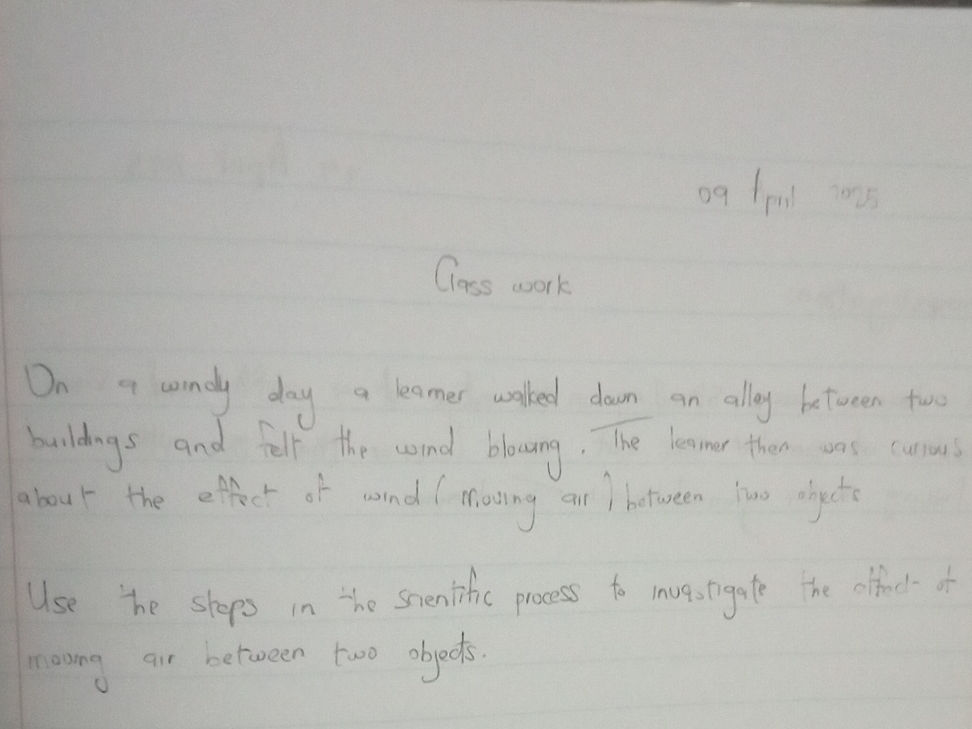 09 April 2025
Class work
On a windy day a learner walked down an alley between two
buildings and felt the wind blowing. The learner then was curious
about the effect of wind (moving air) between two objects
Use the steps in the scientific process to investigate the effect of
moving air between two objects.